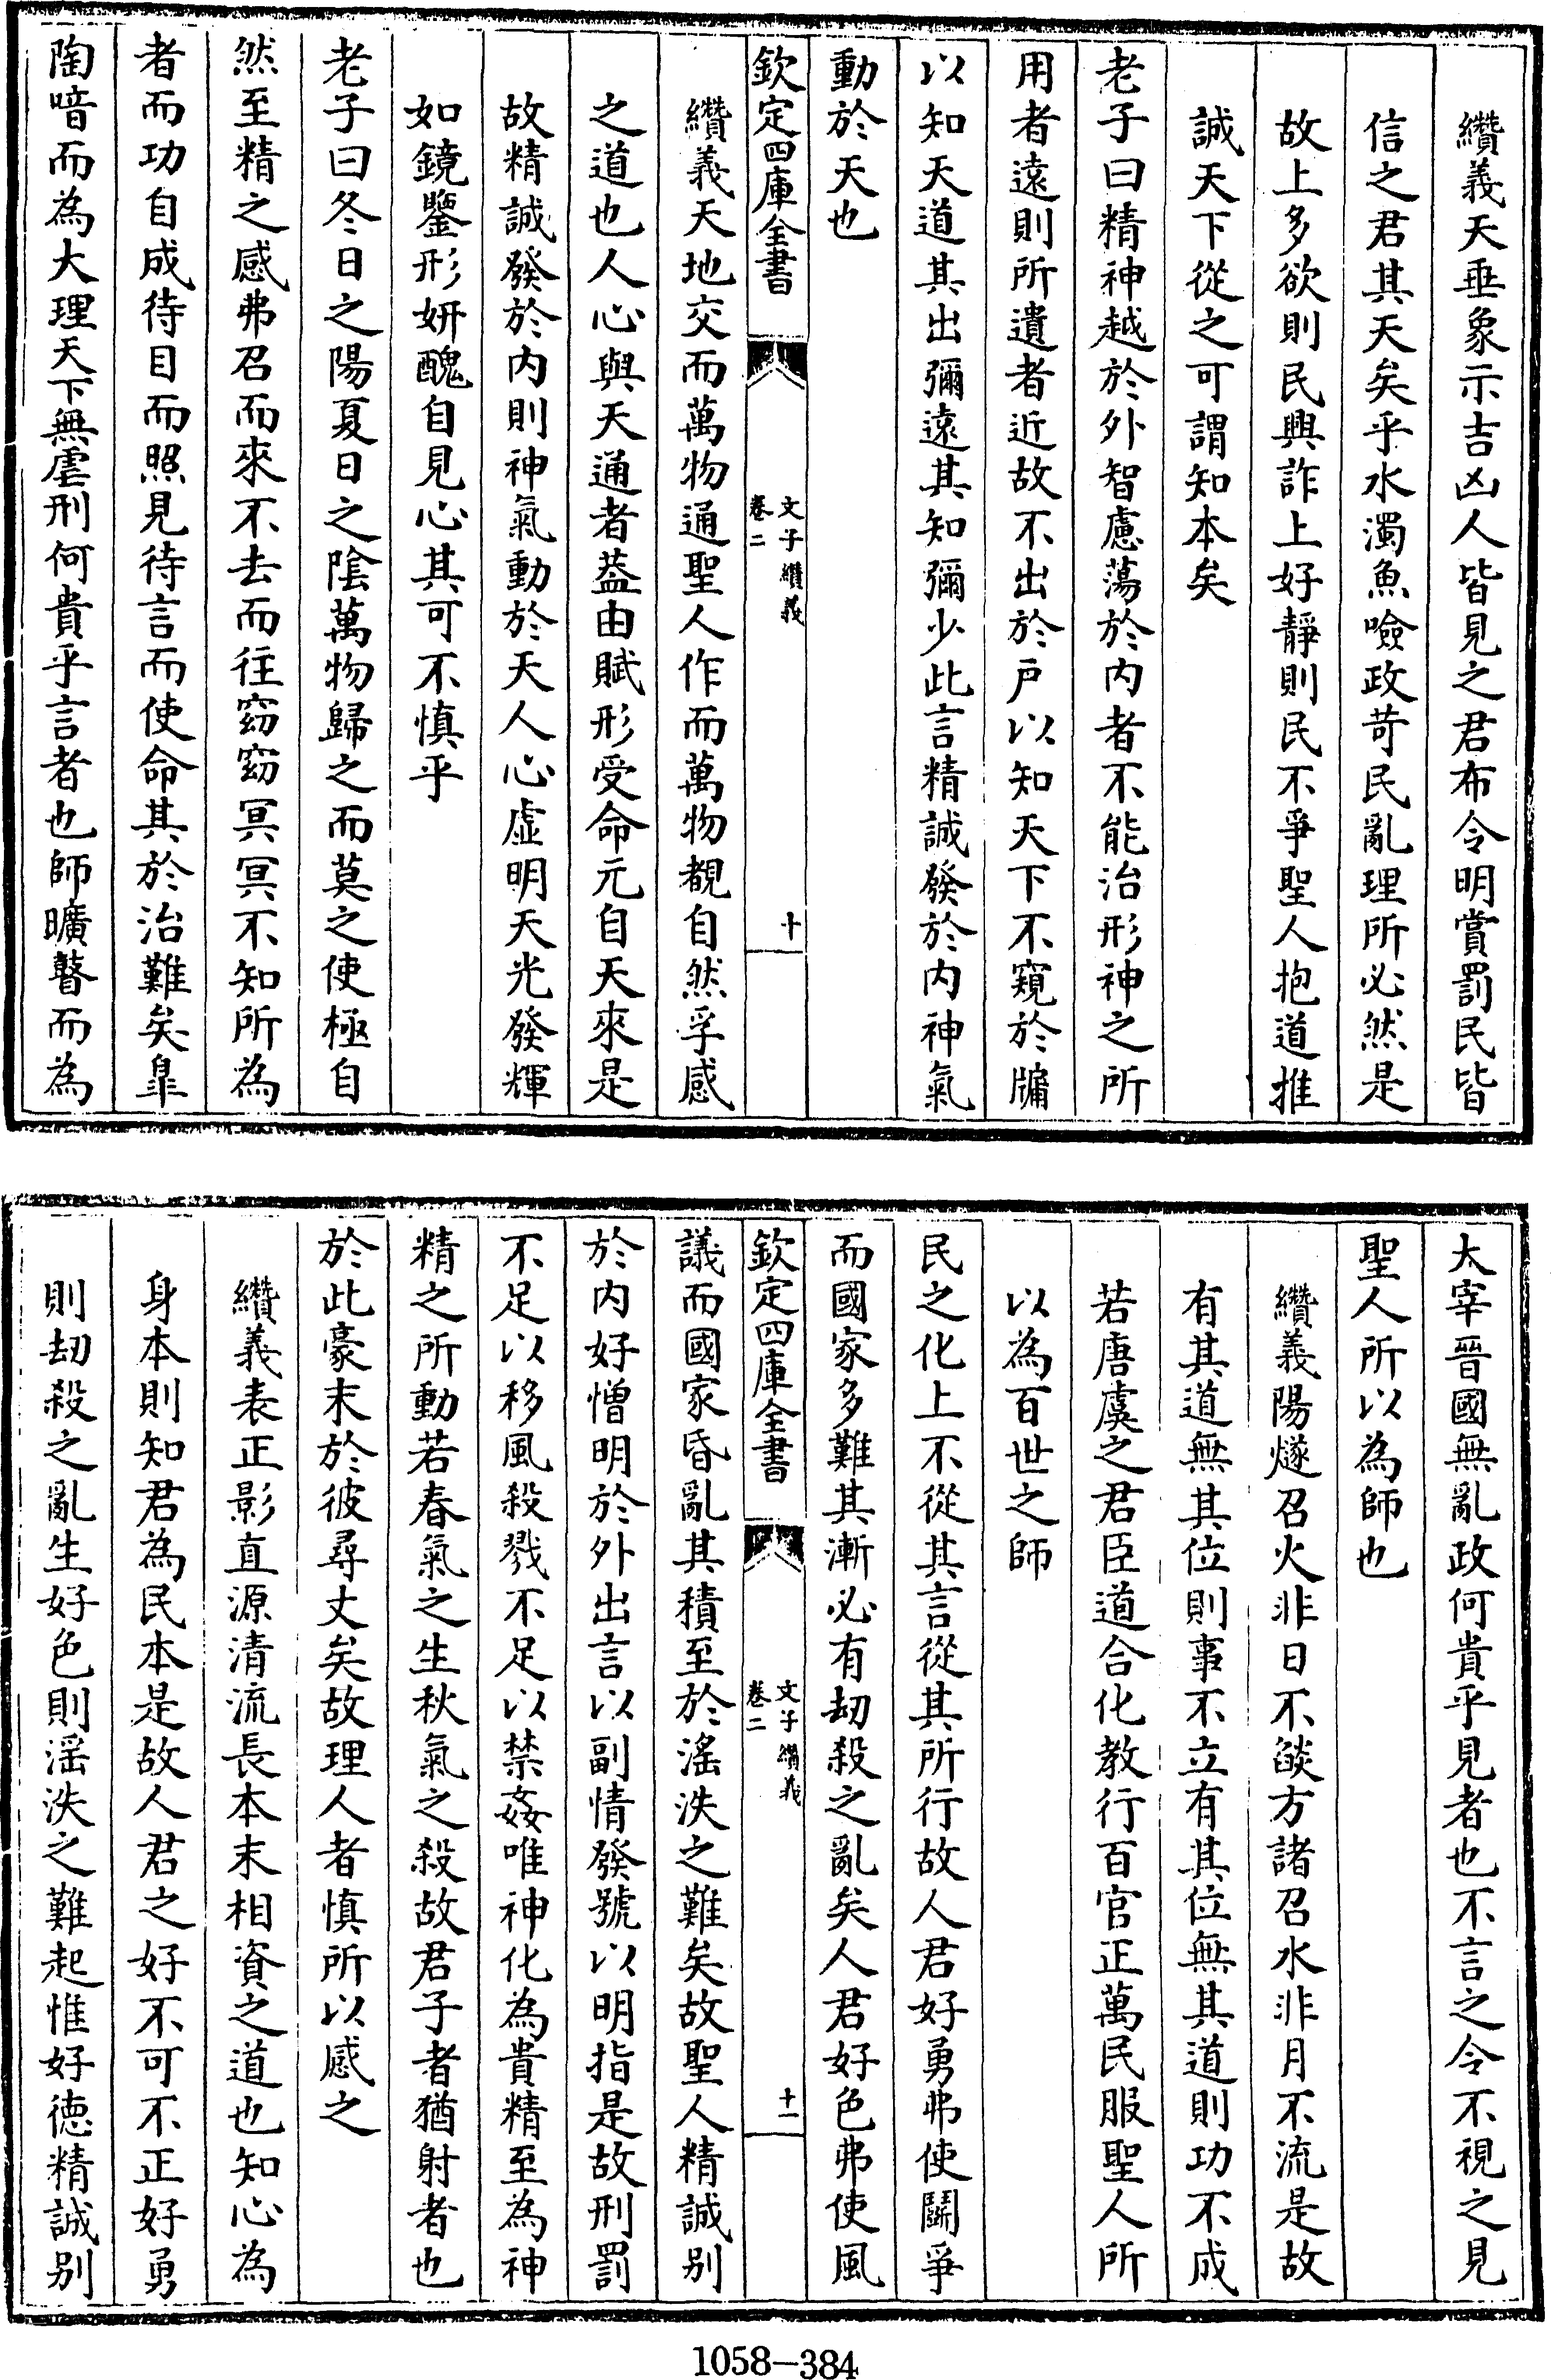 纘義天垂象示吉凶人皆見之君布令明賞罰民皆
信之君其天矣乎水濁魚噞政苛民亂理所必然是
故上多欲則民興詐上好靜則民不爭聖人抱道推
誠天下從之可謂知本矣
老子曰精神越於外智慮蕩於内者不能治形神之所
用者遠則所遺者近故不出於戶以知天下不窺於牖
以知天道其出彌遠其知彌少此言精誠發於内神氣
動於天也
欽定四庫全書
文子纘義
卷二
十
纘義天地交而萬物通聖人作而萬物覩自然孚感
之道也人心與天通者葢由賦形受命元自天來是
故精誠發於内則神氣動於天人心虛明天光發輝
如鏡鑒形妍醜自見心其可不慎乎
老子曰冬日之陽夏日之陰萬物歸之而莫之使極自
然至精之感弗召而來不去而往窈窈冥冥不知所為
者而功自成待目而照見待言而使命其於治難矣臯
陶喑而為大理天下無虐刑何貴乎言者也師曠瞽而為
太宰晉國無亂政何貴乎見者也不言之令不視之見
聖人所以為師也
纘義陽燧召火非日不燄方諸召水非月不流是故
有其道無其位則事不立有其位無其道則功不成
若唐虞之君臣道合化教行百官正萬民服聖人所
以為百世之師
民之化上不從其言從其所行故人君好勇弗使鬭爭
而國家多難其漸必有刼殺之亂矣人君好色弗使風
欽定四庫全書
文子纘義
卷二
十一
議而國家昏亂其積至於滛泆之難矣故聖人精誠别
於内好憎明於外出言以副情發號以明指是故刑罰
不足以移風殺戮不足以禁姦唯神化為貴精至為神
精之所動若春氣之生秋氣之殺故君子者猶射者也
於此豪末於彼尋丈矣故理人者慎所以感之
纘義表正影直源清流長本末相資之道也知心為
身本則知君為民本是故人君之好不可不正好勇
則刼殺之亂生好色則滛泆之難起惟好德精誠别
1058—384